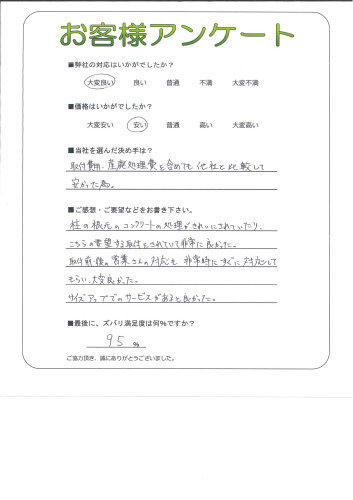 お客様アンケート
■弊社の対応はいかがでしたか？
大変良い 良い 普通 不満 大変不満
■価格はいかがでしたか？
大変安い 安い 普通 高い 大変高い
■当社を選んだ決め手は？
取付費用、産廃処理費を含めても他社と比較して
安かった為。
■ご感想・ご要望などをお書き下さい。
柱の根元のコンクリートの処理がきれいにされていたり、
こちらの要望する取付をされていて非常に良かった。
取付前・後の営業さんの対応も非常時にすぐに対応して
もらい、大変良かった。
サイズアップでのサービスがあると良かった。
■最後に、ズバリ満足度は何%ですか？
95 %
ご協力頂き、誠にありがとうございました。